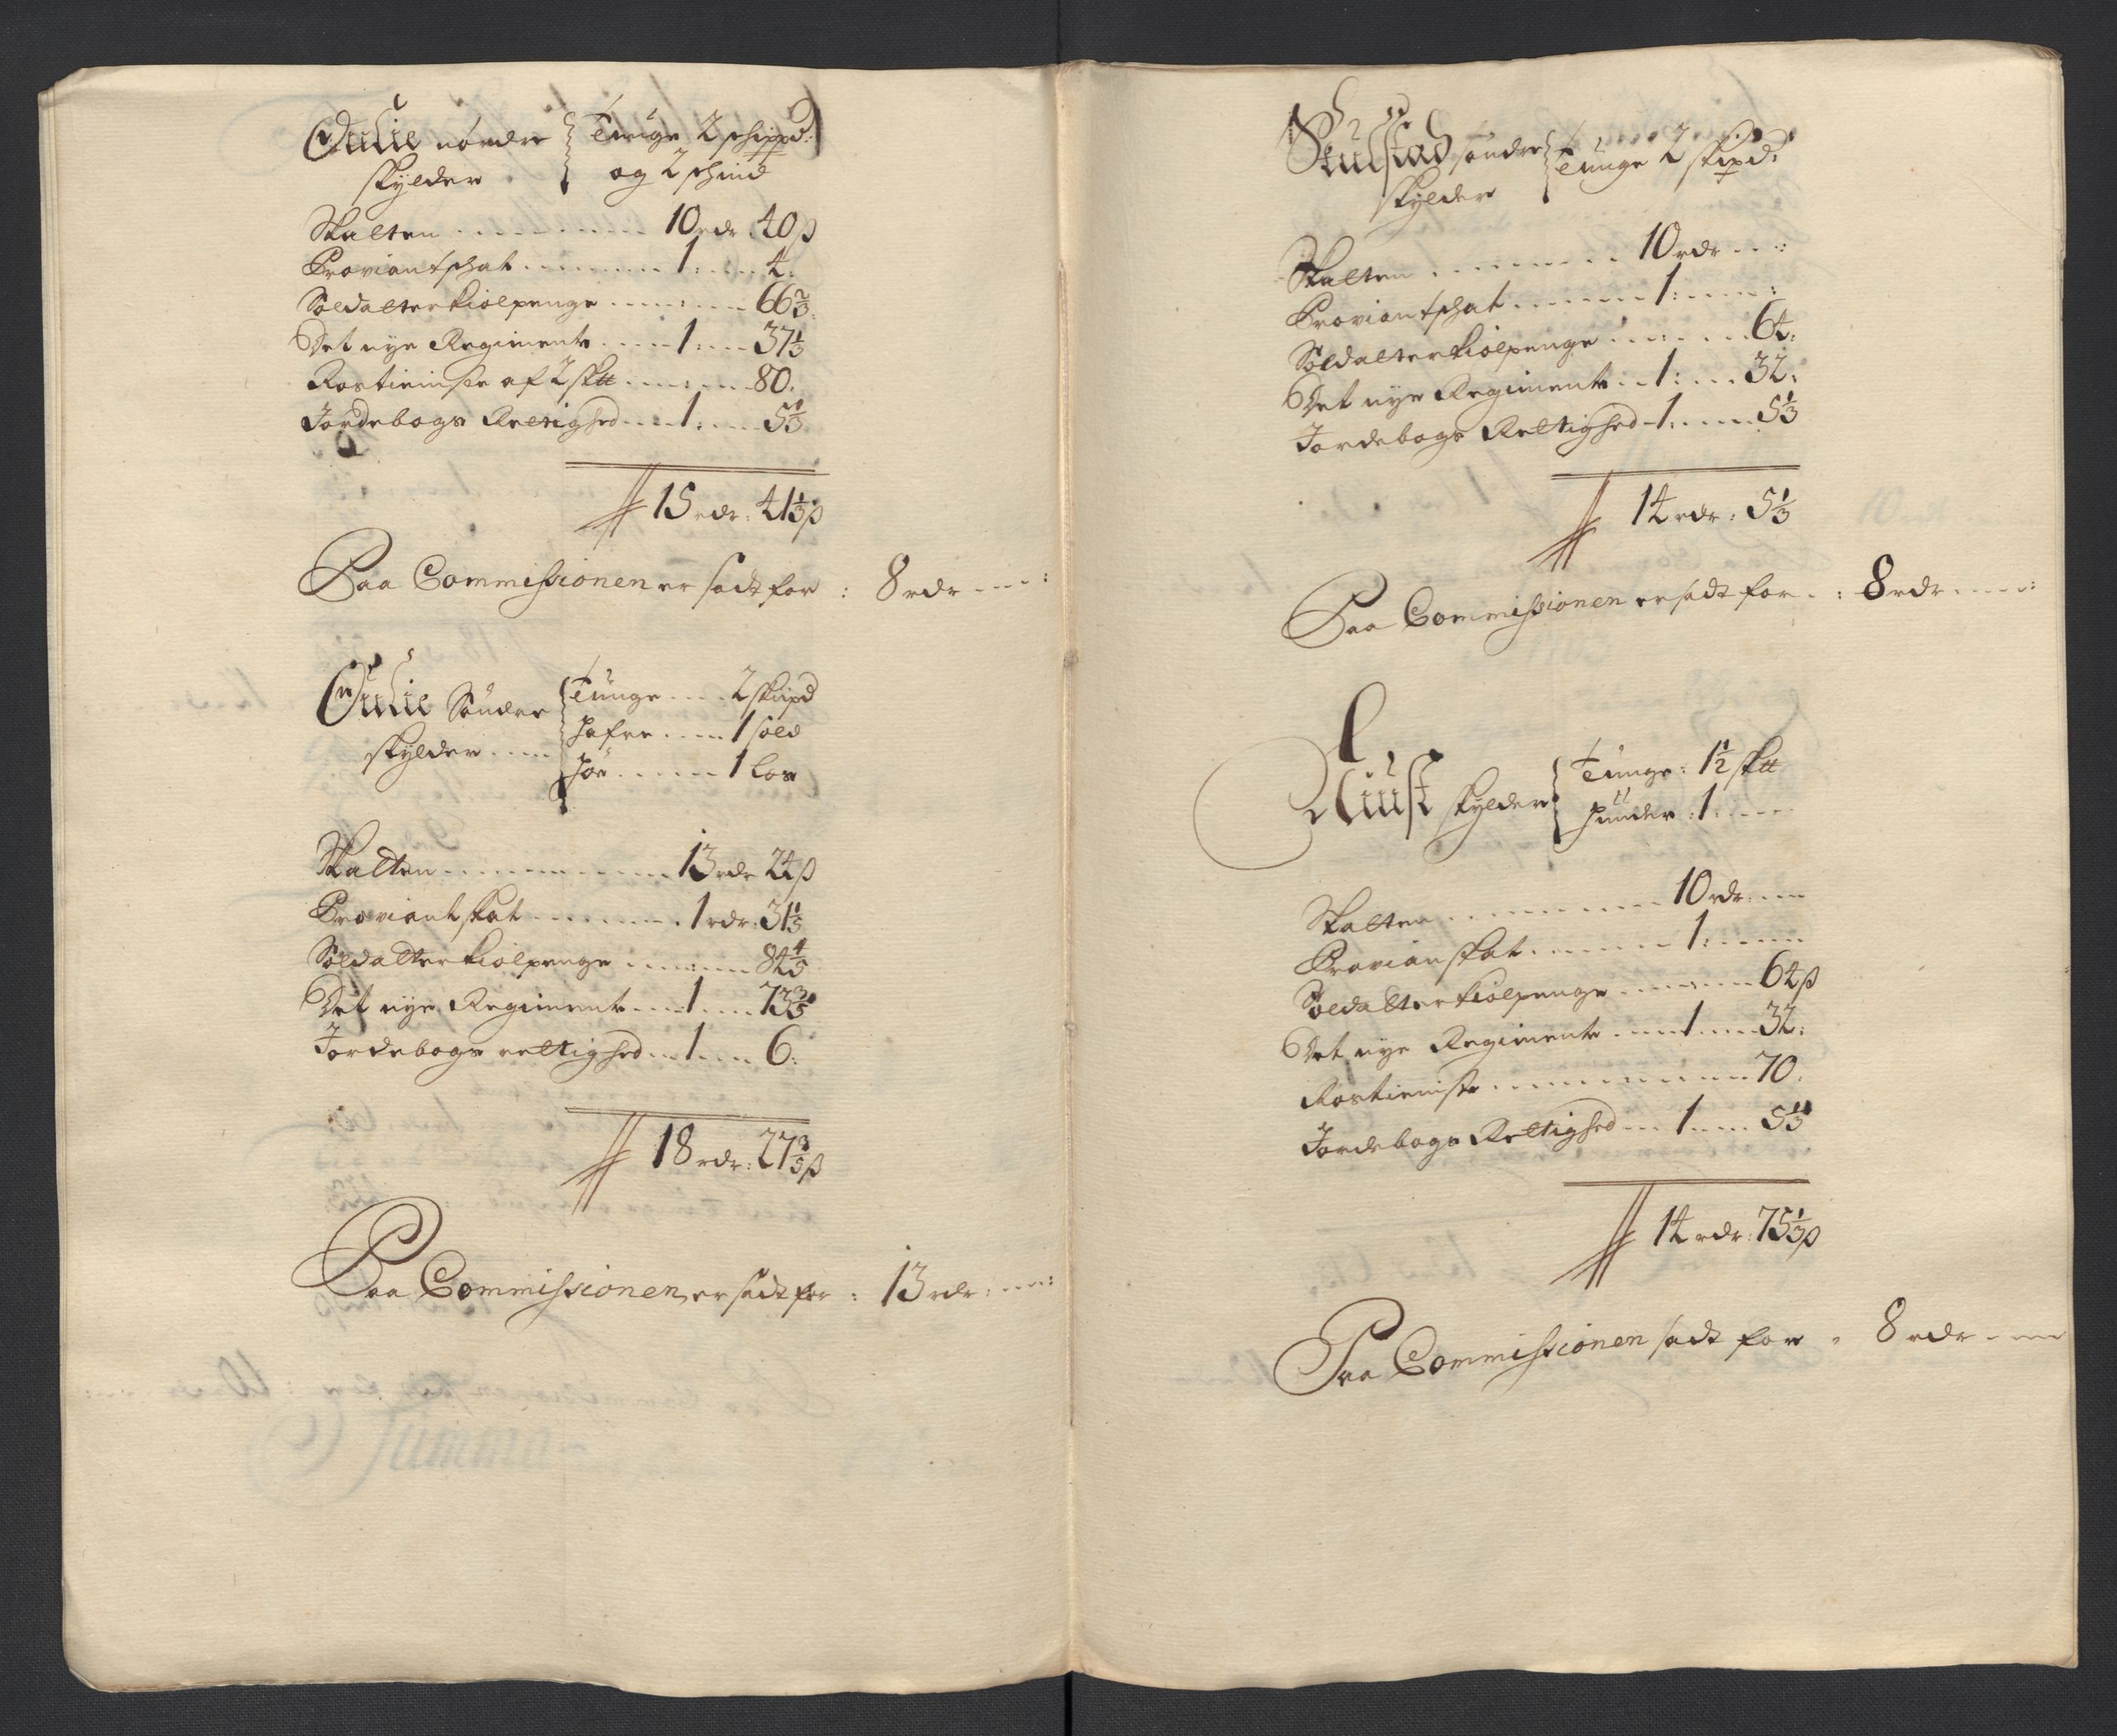 Oulie nordre Tunge 2 schippd:
skylder og 2 schind
Skatten 10 rdr 40 ß
Proviantschat 1 4:
Soldatterkiolpenge 66 2/3:
Det nye Regiments 1: 37 1/3
Rostieniste af 2 sktt 80:
Jordebogs Rettighed 1: 5 1/3
15 rdr: 41 1/3 ß
Paa Commissionen er sadt for : 8 rdr
Oulie Sönder Tunge 2 skipd
skylder Hafre 1 sold
Höe 1 los
Skatten 13 rdr 24 ß
Proviantskat 1 rdr: 31 1/5
Soldatterkiolpenge 84 4/5
Det nye Regiments 1 73 3/5
Jordebogs rettighed 1 6:
18 rdr: 27 3/5 ß
Paa Commissionen er sadt for : 13 rdr:
Skulstad söndre Tunge 2 skipd:
skylder
Skatten 10 rdr
Proviantschat 1:
Soldatterkiolpenge 64:
Det nye Regiments 1: 32:
Jordebogs Rettighed 1: 5 1/3
14 rdr: 5 1/3
Paa Commissionen er sadt for : 8 rdr
Rust skylder Tunge: 1 1/2 sktt
Hunder: 1:
Skatten 10 rdr:
Provianskat 1:
Soldatterkiolpenge 64 ß
Det nye Regiments 1 32:
Rostieniste 70:
Jordebogs Rettighed 1 5 1/3
14 rdr: 75 1/3 ß
Paa Commissionen sadt for : 8 rdr